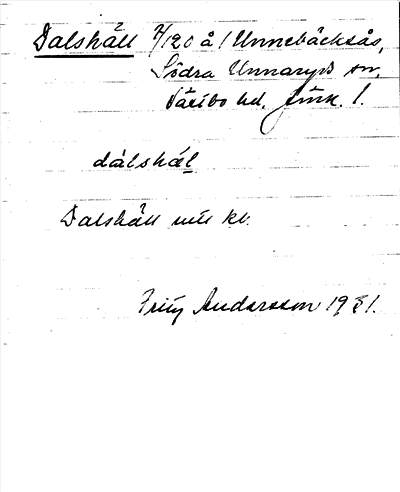 Dalshäll 7/120 å 1 Unnebäcksås,
Södra Unnaryds sn,
Västbo hd, Jönk. l.
dálshä́l
Dalshäll
Andersson 1931.